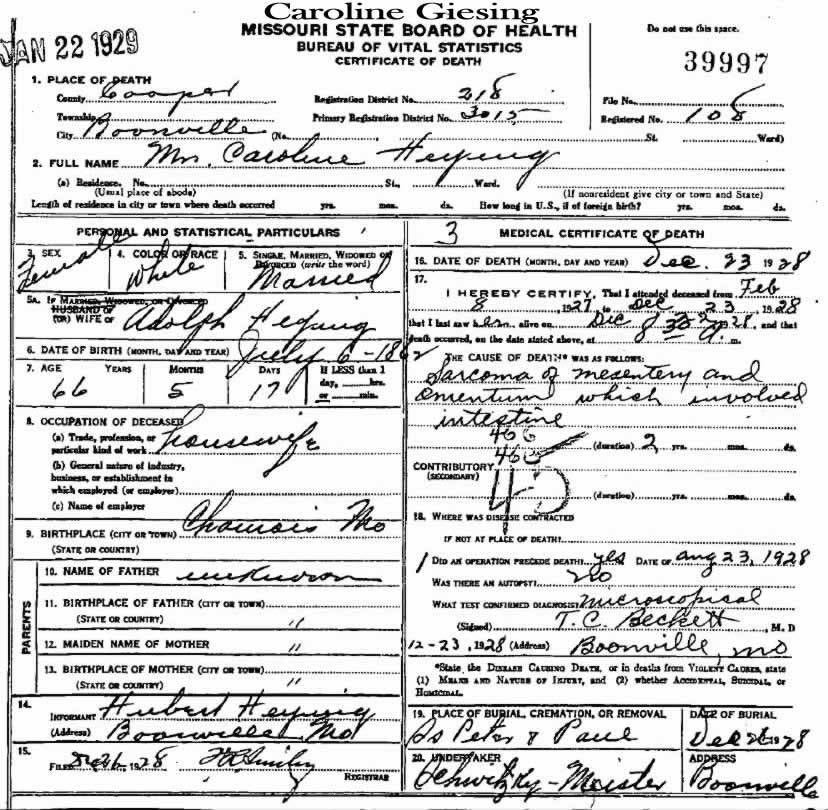 Caroline Giesing
MISSOURI STATE BOARD OF HEALTH
BUREAU OF VITAL STATISTICS
CERTIFICATE OF DEATH
JAN 22 1929
Do not use this space.
39997
1. PLACE OF DEATH
County Cooper Registration District No. 218 File No.
Township Primary Registration District No. 3015 Registered No. 108
City Boonville (No. St. Ward)
2. FULL NAME Mrs. Caroline Heying
(a) Residence. No. St. Ward.
(Usual place of abode) (If nonresident give city or town and State)
Length of residence in city or town where death occurred yrs. mos. ds. How long in U.S., if of foreign birth? yrs. mos. ds.
PERSONAL AND STATISTICAL PARTICULARS
3. SEX Female
4. COLOR OR RACE White
5. SINGLE, MARRIED, WIDOWED OR DIVORCED (write the word) Married
5A. IF MARRIED, WIDOWED, OR DIVORCED
HUSBAND OF
(OR) WIFE OF Adolph Heying
6. DATE OF BIRTH (MONTH, DAY AND YEAR) July 6-1862
7. AGE YEARS MONTHS DAYS If LESS than 1
66 5 17 day, hrs.
or min.
8. OCCUPATION OF DECEASED
(a) Trade, profession, or
particular kind of work housewife
(b) General nature of industry,
business, or establishment in
which employed (or employer)
(c) Name of employer
9. BIRTHPLACE (CITY OR TOWN) Chamois Mo
(STATE OR COUNTRY)
PARENTS
10. NAME OF FATHER unknown
11. BIRTHPLACE OF FATHER (CITY OR TOWN)
(STATE OR COUNTRY) "
12. MAIDEN NAME OF MOTHER "
13. BIRTHPLACE OF MOTHER (CITY OR TOWN)
(STATE OR COUNTRY) "
14.
INFORMANT Hubert Heying
(Address) Boonville Mo
15.
FILED 1928
REGISTRAR
3 MEDICAL CERTIFICATE OF DEATH
16. DATE OF DEATH (MONTH, DAY AND YEAR) Dec. 23 1928
17.
I HEREBY CERTIFY, That I attended deceased from Feb
8, 1927, to Dec 23, 1928
that I last saw her alive on Dec 1928, and that
death occurred, on the date stated above, at m.
THE CAUSE OF DEATH* WAS AS FOLLOWS:
Sarcoma of mesentery and
omentum which involved
intestine
46
(duration) 2 yrs. mos. ds.
CONTRIBUTORY
(SECONDARY)
(duration) yrs. mos. ds.
18. WHERE WAS DISEASE CONTRACTED
IF NOT AT PLACE OF DEATH?
DID AN OPERATION PRECEDE DEATH? yes DATE OF Aug 23, 1928
WAS THERE AN AUTOPSY? no
WHAT TEST CONFIRMED DIAGNOSIS? microscopical
(Signed) T. C. Beckett, M. D
12-23, 1928 (Address) Boonville, Mo
*State the DISEASE CAUSING DEATH, or in deaths from VIOLENT CAUSES, state
(1) MEANS AND NATURE OF INJURY, and (2) whether ACCIDENTAL, SUICIDAL, or
HOMICIDAL.
19. PLACE OF BURIAL, CREMATION, OR REMOVAL DATE OF BURIAL
Ss Peter & Paul Dec 26 1928
20. UNDERTAKER ADDRESS
Meister Boonville